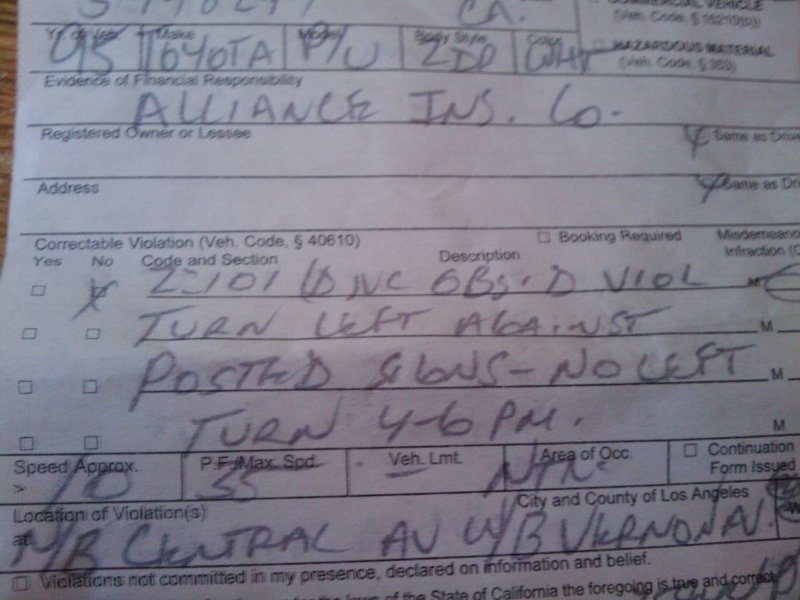 CA.
COMMERCIAL VEHICLE
(Veh. Code, § 15210(b))
Yr. of Veh. Make Model Body Style Color
95 TOYOTA P/U 2DD WHT
HAZARDOUS MATERIAL
(Veh. Code, § 353)
Evidence of Financial Responsibility
ALLIANCE INS. Co.
Registered Owner or Lessee Same as Drive
Address Same as Dri
Correctable Violation (Veh. Code, § 40610) Booking Required Misdemeano
Yes No Code and Section Description Infraction (C
22101 (D) VC OBS'D VIOL M
TURN LEFT AGAINST M
POSTED SIGNS - NO LEFT M
TURN 4-6 PM. M
Speed Approx. P.F./Max. Spd. Veh. Lmt. Area of Occ. Continuation
Form Issued
> 10 35 - NTN
Location of Violation(s) City and County of Los Angeles
at N/B CENTRAL AV W/B VERNON AV
Violations not committed in my presence, declared on information and belief.
laws of the State of California the foregoing is true and correct